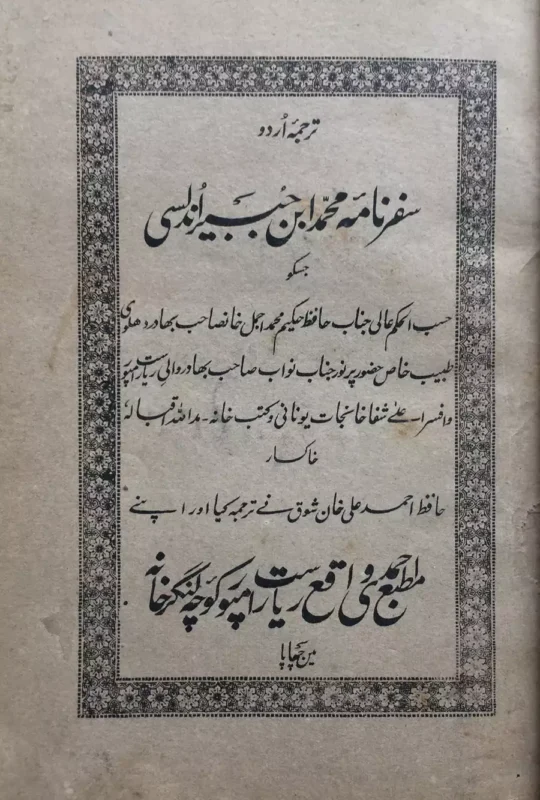 ترجمۂ اُردو
سفرنامہ محمّد ابن جُبیر اُندلسی
جسکو
حسب الحکم عالی جناب حافظ حکیم محمد اجمل خانصاحب بھادر دھلوی
طبیب خاص حضور پر نور جناب نواب صاحب بھادر والی ریاست رامپور
و افسر اعلےٰ شفا خانجات یونانی و کتب خانہ۔ مد اللہ اقبالہٗ
خاکسار
حافظ احمد علی خان شوق نے ترجمہ کیا اور اپنے
مطبع احمدی واقع ریاست رامپور کوچہ لنگرخانہ
مین چھاپا